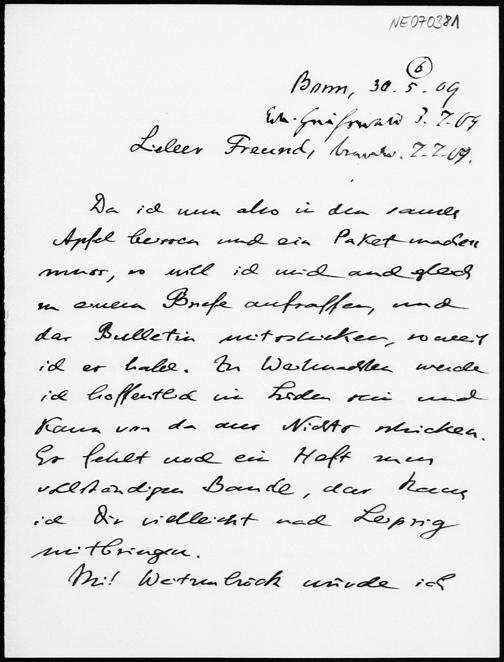 NE070381
6
Bonn, 30.5.09
Erh. Greifswald 3.7.09
Lieber Freund, beantw. 7.7.09.
Da ich nun also in den sauren
Apfel beissen und ein Paket machen
muss, so will ich mich auch gleich
zu einem Briefe aufraffen, und
das Bulletin mitschicken, soweit
ich es habe. Zu Weihnachten werde
ich hoffentlich im Süden sein und
kann von da aus Nichts schicken.
Es fehlt noch ein Heft zum
vollständigen Bande, das kann
ich Dir vielleicht nach Leipzig
mitbringen.
Mit würde ich